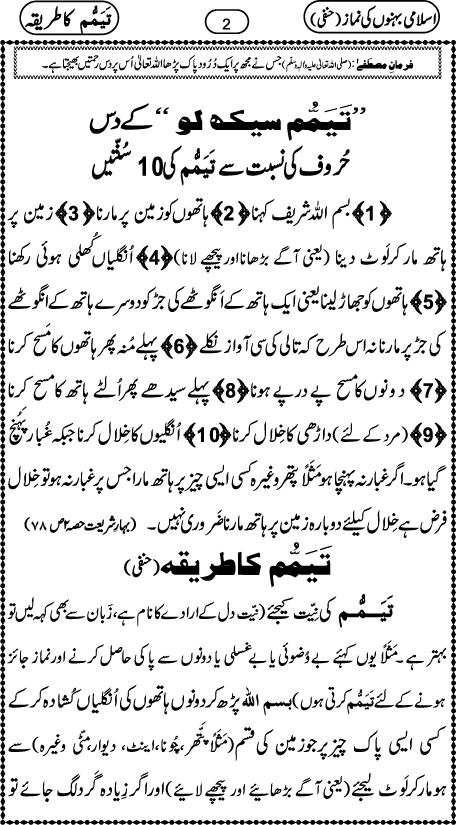 اسلامی بہنوں کی نماز (حنفی)
2
تَیَمُّم کا طریقہ
فرمانِ مصطفٰے: (صلی اللہ تعالیٰ علیہ والہ وسلم) جس نے مجھ پر ایک دُرُود پاک پڑھا اللہ تعالیٰ اُس پر دس رحمتیں بھیجتا ہے۔
”تَیَمُّم سیکھ لو“ کے دس
حُرُوف کی نسبت سے تَیَمُّم کی 10 سُنّتیں
﴿1﴾ بسم اللہ شریف کہنا ﴿2﴾ ہاتھوں کو زمین پر مارنا ﴿3﴾ زمین پر
ہاتھ مار کر لَوٹ دینا (یعنی آگے بڑھانا اور پیچھے لانا) ﴿4﴾ اُنگلیاں کُھلی ہوئی رکھنا
﴿5﴾ ہاتھوں کو جھاڑ لینا یعنی ایک ہاتھ کے انگوٹھے کی جڑ کو دوسرے ہاتھ کے انگوٹھے
کی جڑ پر مارنا نہ اس طرح کہ تالی کی سی آواز نکلے ﴿6﴾ پہلے مُنہ پھر ہاتھوں کا مَسح کرنا
﴿7﴾ دونوں کا مسح پے در پے ہونا ﴿8﴾ پہلے سیدھے پھر اُلٹے ہاتھ کا مسح کرنا
﴿9﴾ (مرد کے لئے) داڑھی کا خِلال کرنا ﴿10﴾ اُنگلیوں کا خِلال کرنا جبکہ غُبار پَہُنچ
گیا ہو۔ اگر غبار نہ پہنچا ہو مَثَلاً پتھر وغیرہ کسی ایسی چیز پر ہاتھ مارا جس پر غبار نہ ہو تو خِلال
فرض ہے خِلال کیلئے دوبارہ زمین پر ہاتھ مارنا ضَروری نہیں۔ (بہارِ شریعت حصہ ۲ ص ۷۸)
تَیَمُّم کا طریقہ (حنفی)
تَیَمُّم کی نِیّت کیجئے (نیّت دل کے ارادے کا نام ہے، زَبان سے بھی کہہ لیں تو
بہتر ہے۔ مَثَلاً یوں کہئے بے وُضوئی یا بے غسلی یا دونوں سے پاکی حاصل کرنے اور نماز جائز
ہونے کے لئے تَیَمُّم کرتی ہوں) بسم اللہ پڑھ کر دونوں ہاتھوں کی اُنگلیاں کُشادہ کر کے
کسی ایسی پاک چیز پر جو زمین کی قسم (مَثَلاً پتّھر، چُونا، اینٹ، دیوار، مٹّی وغیرہ) سے
ہو مار کر لَوٹ لیجئے (یعنی آگے بڑھائیے اور پیچھے لائیے) اور اگر زِیادہ گَرد لگ جائے تو